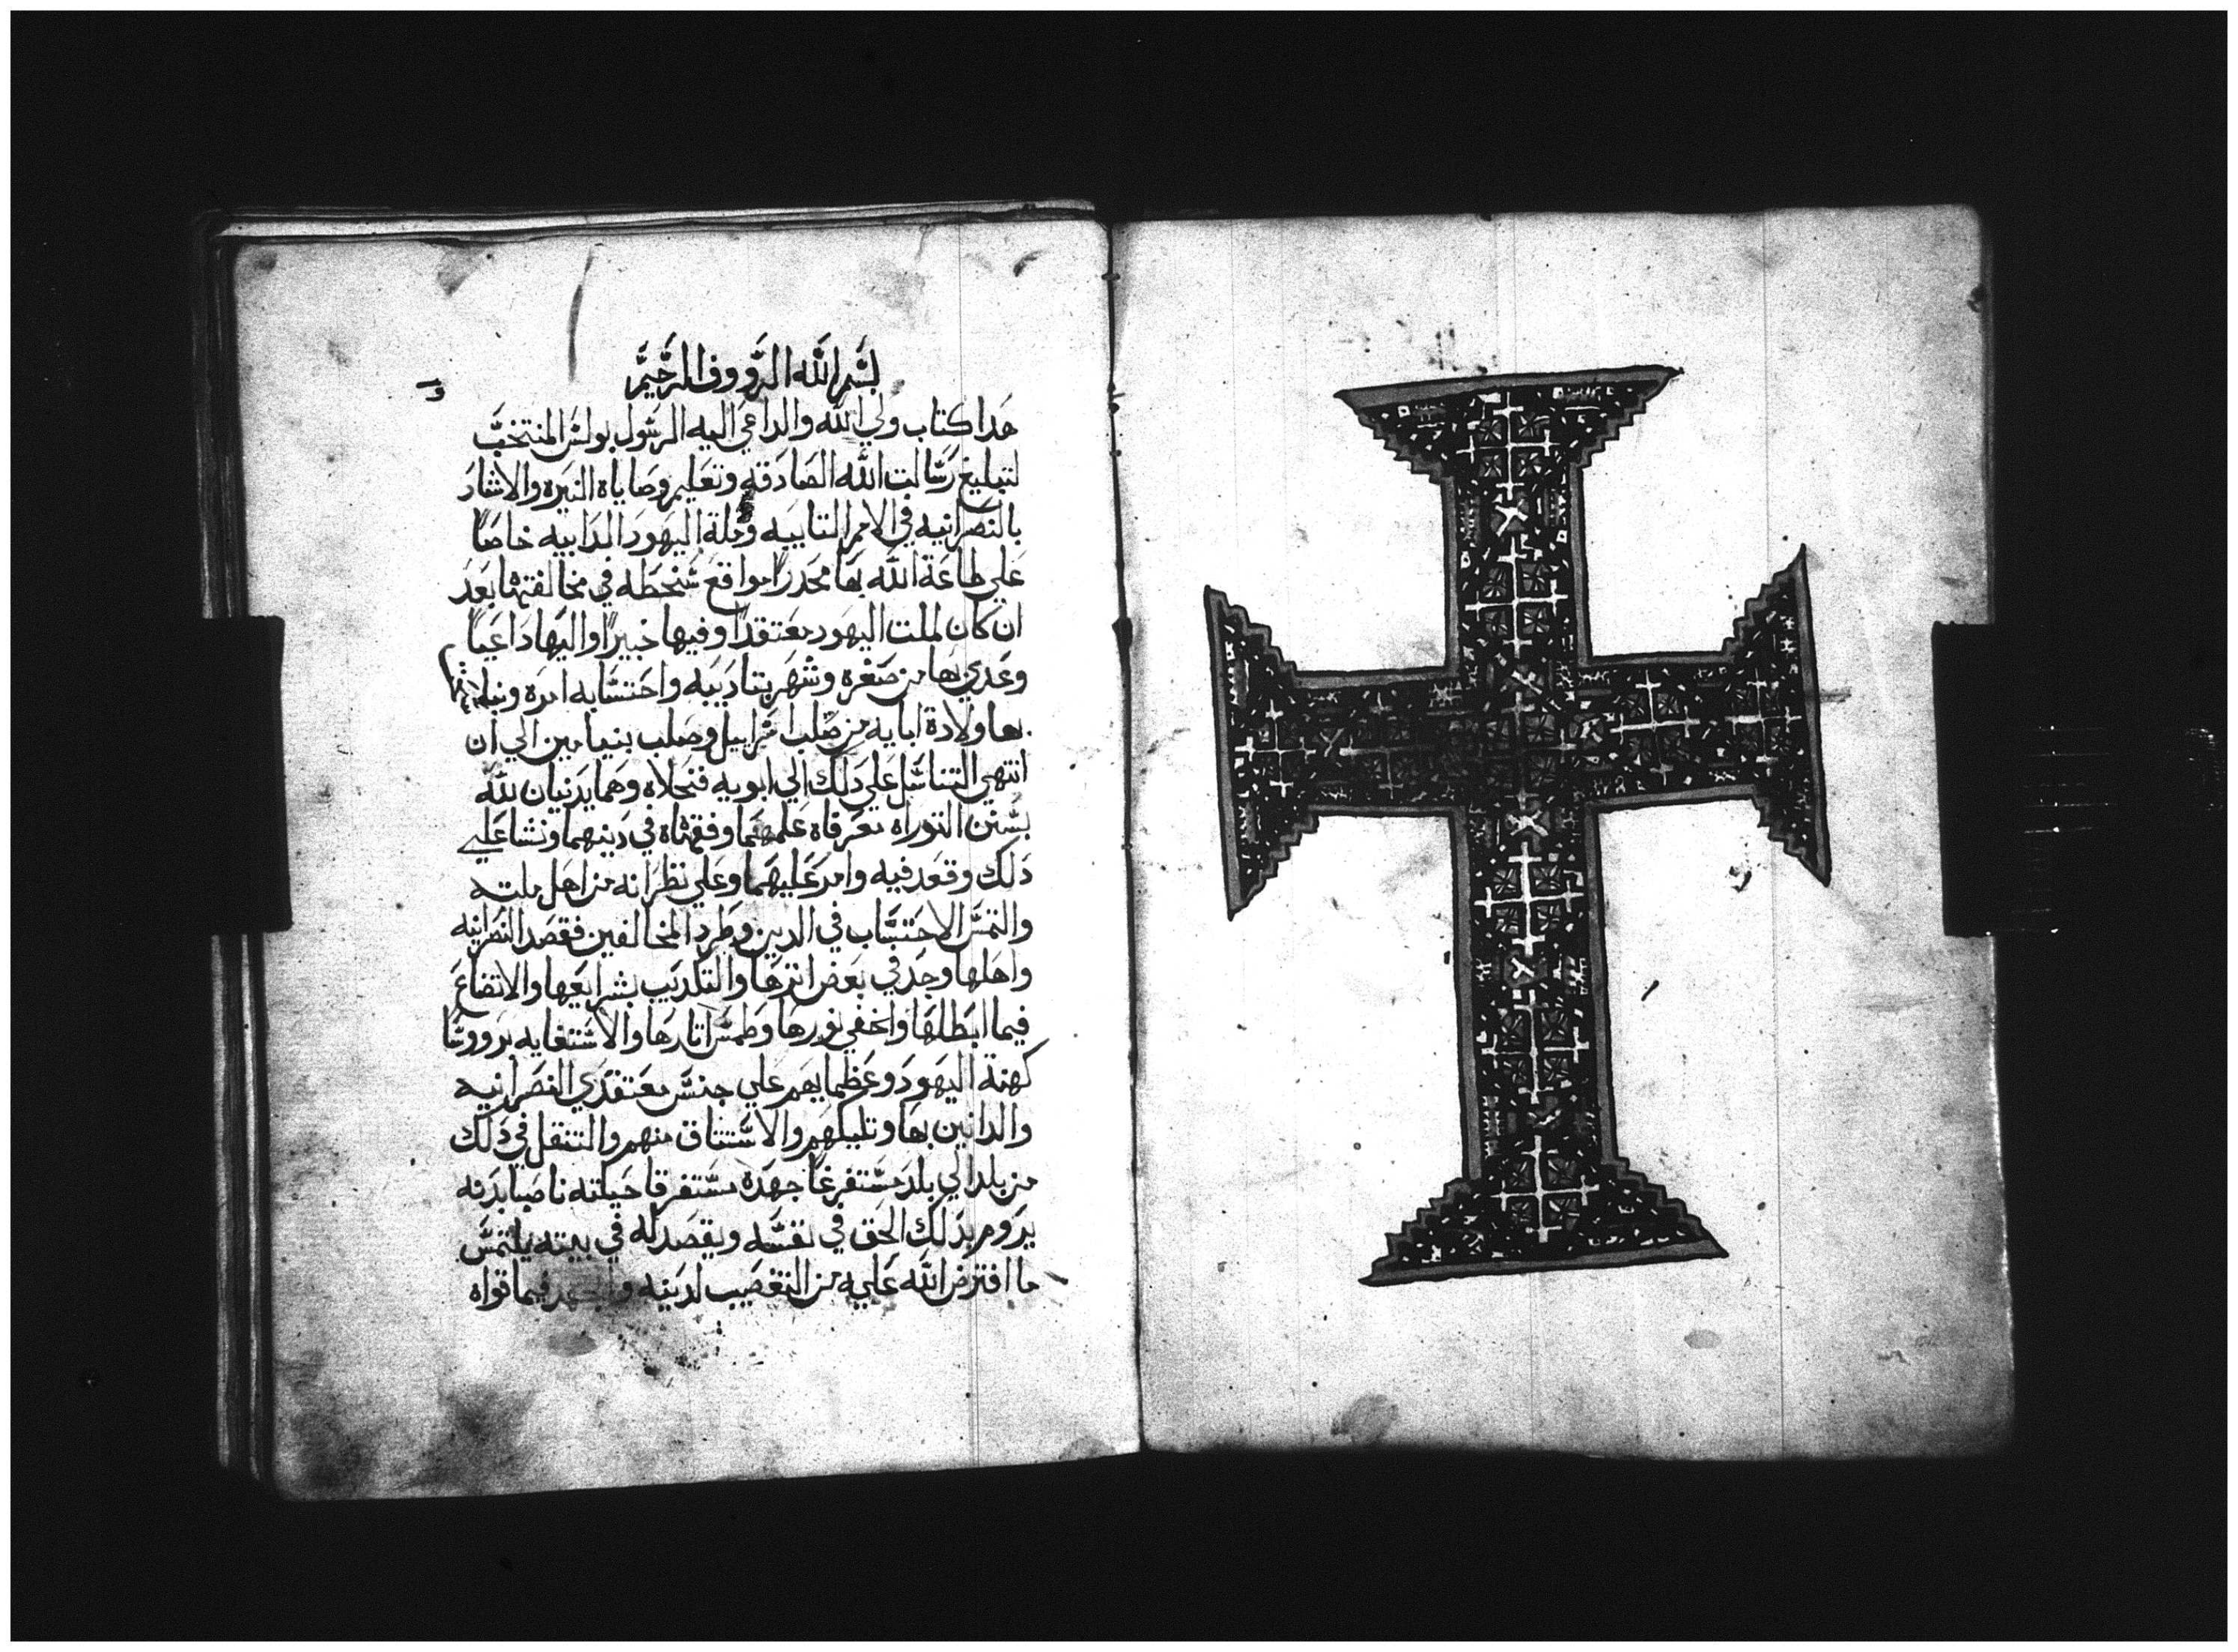 بسم الله الرووف الرحيم
هدا كتاب ولي الله والداعي اليه الرسول بولس المنتخب
لتبليغ رسالت الله الصادقه وتعليم وصاياه النيره والاشاد
بالنصرانيه في الامم التاييه وحلة اليهود الدابيه خاصا
علي طاعة الله بها محدرا مواقع سخطه في مخالفتها بعد
ان كان لملت اليهود معتقدا وفيها خبيرا واليها داعيا
وغدي بها من صغره وشهر بتاديبه واحتسابه امره
بها ولادة ابايه من صلب اسراييل وصلب بنيامين الي ان
انتهي التناسل علي دلك الي ابويه فنحلاه وهما يدنيان لله
بسنن التوراه معرفاه علمهما وفقهاه في دينهما ونشا علي
دلك وقعد فيه وامر عليهما وعلي نظرانه من اهل ملته
والتمس الاحتساب في الدين وطرد المخالفين فقصد النصرانيه
واهلها وجد في بعض اثرها والتكديب بشرايعها والاتضاع
فيما ابطلها واخفي نورها وطمس اثارها والاستغايه بروسا
كهنة اليهود وعظمايهم علي جنس معتقدي النصرانيه
والداينين بها وتلبيكهم والاستتاق منهم والتنقل في دلك
من بلد الي بلد مستفرغا جهده مستفرقا حيلته ناصبا بدنه
يروم بدلك الحق في نفسه ويقصد له في بيته يلتمس
ما افترض الله عليه من التعصيب لدينه والجهد فيما قواه